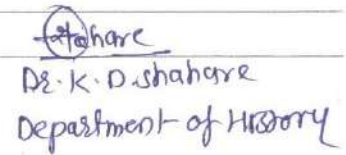 Dr. K. D. shahare
Department of History